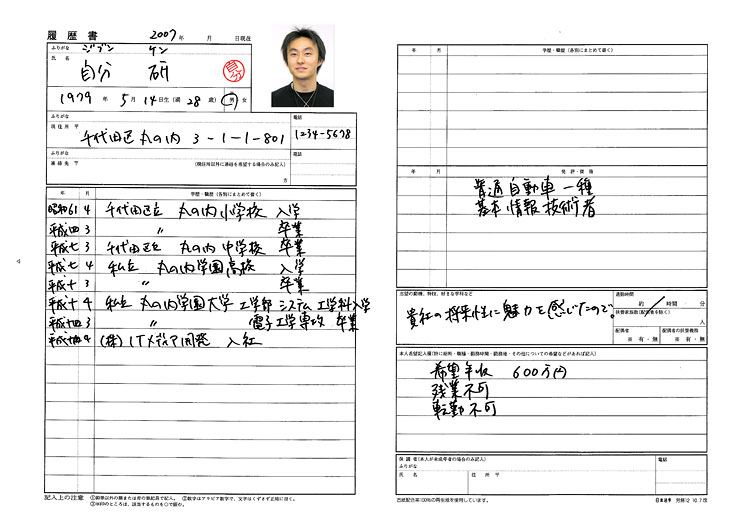 履歴書 2007年 月 日現在
ふりがな ジブン ケン
氏名 自分 研
自分
1979年 5月 14日生 (満 28歳) 男・女
ふりがな
電話
現住所 〒
千代田区丸の内 3-1-1-801
1234-5678
ふりがな
電話
連絡先 〒 (現住所以外に連絡を希望する場合のみ記入)
年 月 学歴・職歴(各別にまとめて書く)
昭和61 4 千代田区立 丸の内小学校 入学
平成四 3 〃 卒業
平成七 3 千代田区立 丸の内中学校 卒業
平成七 4 私立 丸の内学園高校 入学
平成十 3 〃 卒業
平成十 4 私立 丸の内学園大学 工学部 システム工学科入学
平成十四 3 〃 電子工学専攻 卒業
平成十四 4 (株)ITメディア開発 入社
記入上の注意 ①鉛筆以外の黒または青の筆記具で記入。 ②数字はアラビア数字で、文字はくずさず正確に書く。
③※印のところは、該当するものを○で囲む。
年 月 学歴・職歴(各別にまとめて書く)
年 月 免許・資格
普通自動車一種
基本情報技術者
志望の動機、特技、好きな学科など
貴社の将来性に魅力を感じたので。
通勤時間
約 時間 分
扶養家族数(配偶者を除く)
人
配偶者
※ 有・無
配偶者の扶養義務
※ 有・無
本人希望記入欄(特に給料・職種・勤務時間・勤務地・その他についての希望などがあれば記入)
希望年収 600万円
残業不可
転勤不可
保護者(本人が未成年者の場合のみ記入)
ふりがな
電話
氏名 住所 〒
古紙配合率100%の再生紙を使用しています。